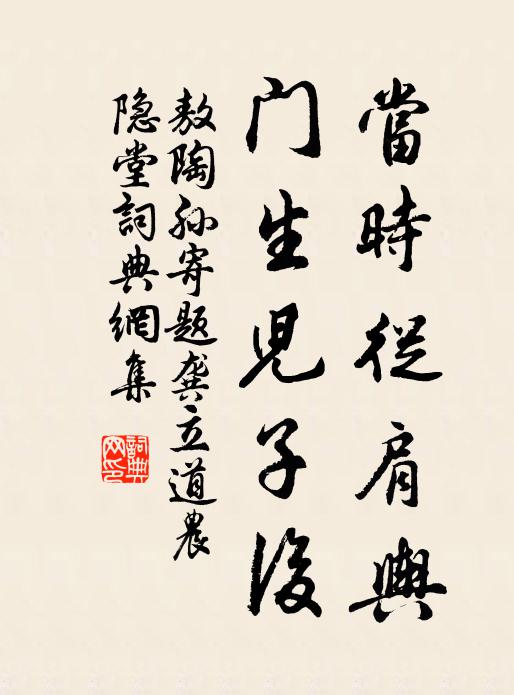 當時從肩輿
門生児子後
敖陶孙寄題龚立道農
隐堂詞典網集
詞典网印